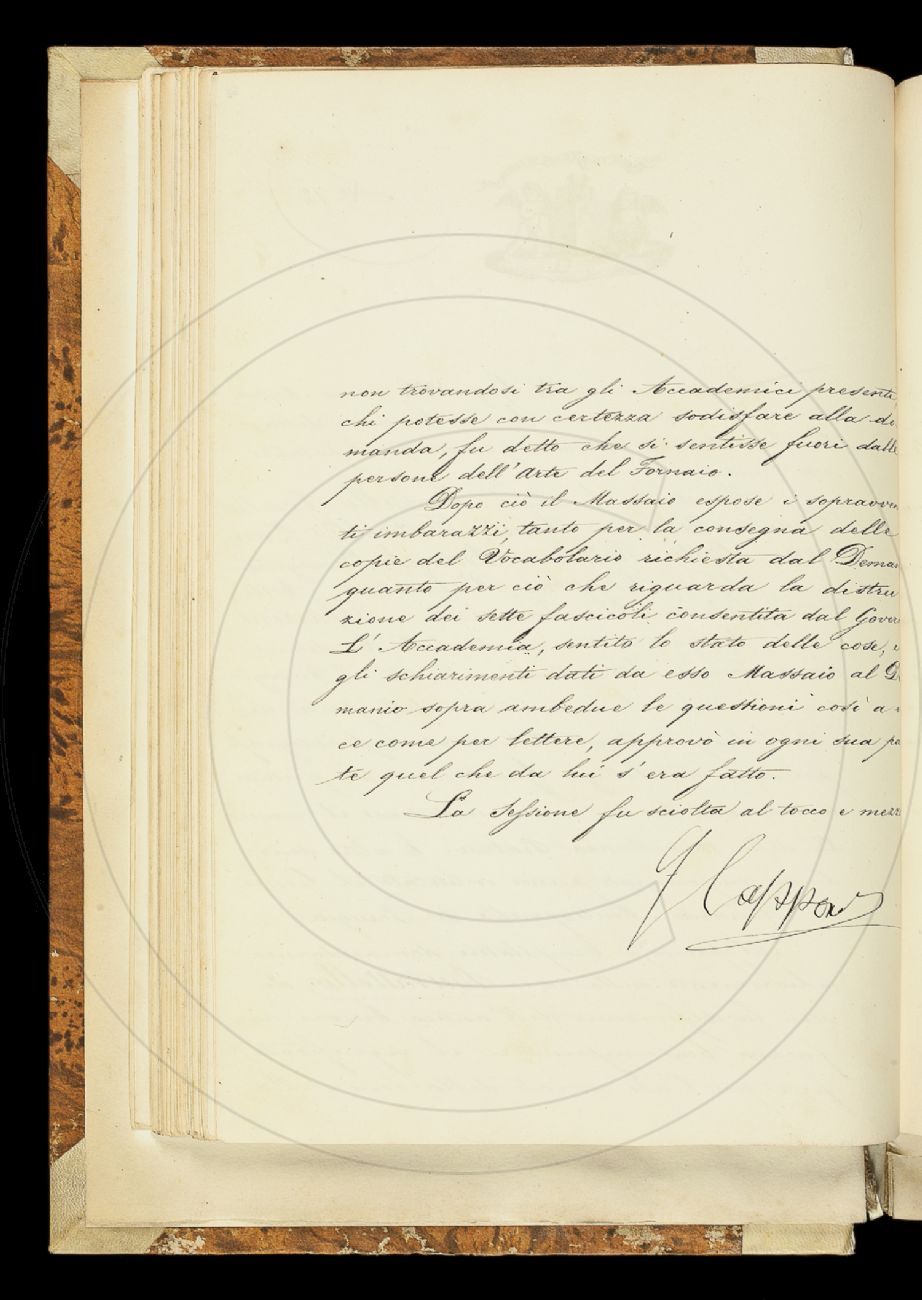 non trovandosi tra gli Accademici presenti
chi potesse con certezza sodisfare alla do
manda, fu detto che si sentisse fuori dalle
persone dell'Arte del Fornaio.
Dopo ciò il Massaio espose i sopravven
ti imbarazzi, tanto per la consegna delle
copie del Vocabolario richiesta dal Dema
quanto per ciò che riguarda la distru
zione dei sette fascicoli consentita dal Gover
L'Accademia, sentito lo stato delle cose, e
gli schiarimenti dati da esso Massaio al D
manio sopra ambedue le questioni così a
ce come per lettere, approvò in ogni sua pa
te quel che da lui s'era fatto.
La Sessione fu sciolta al tocco e mezz
G Capponi